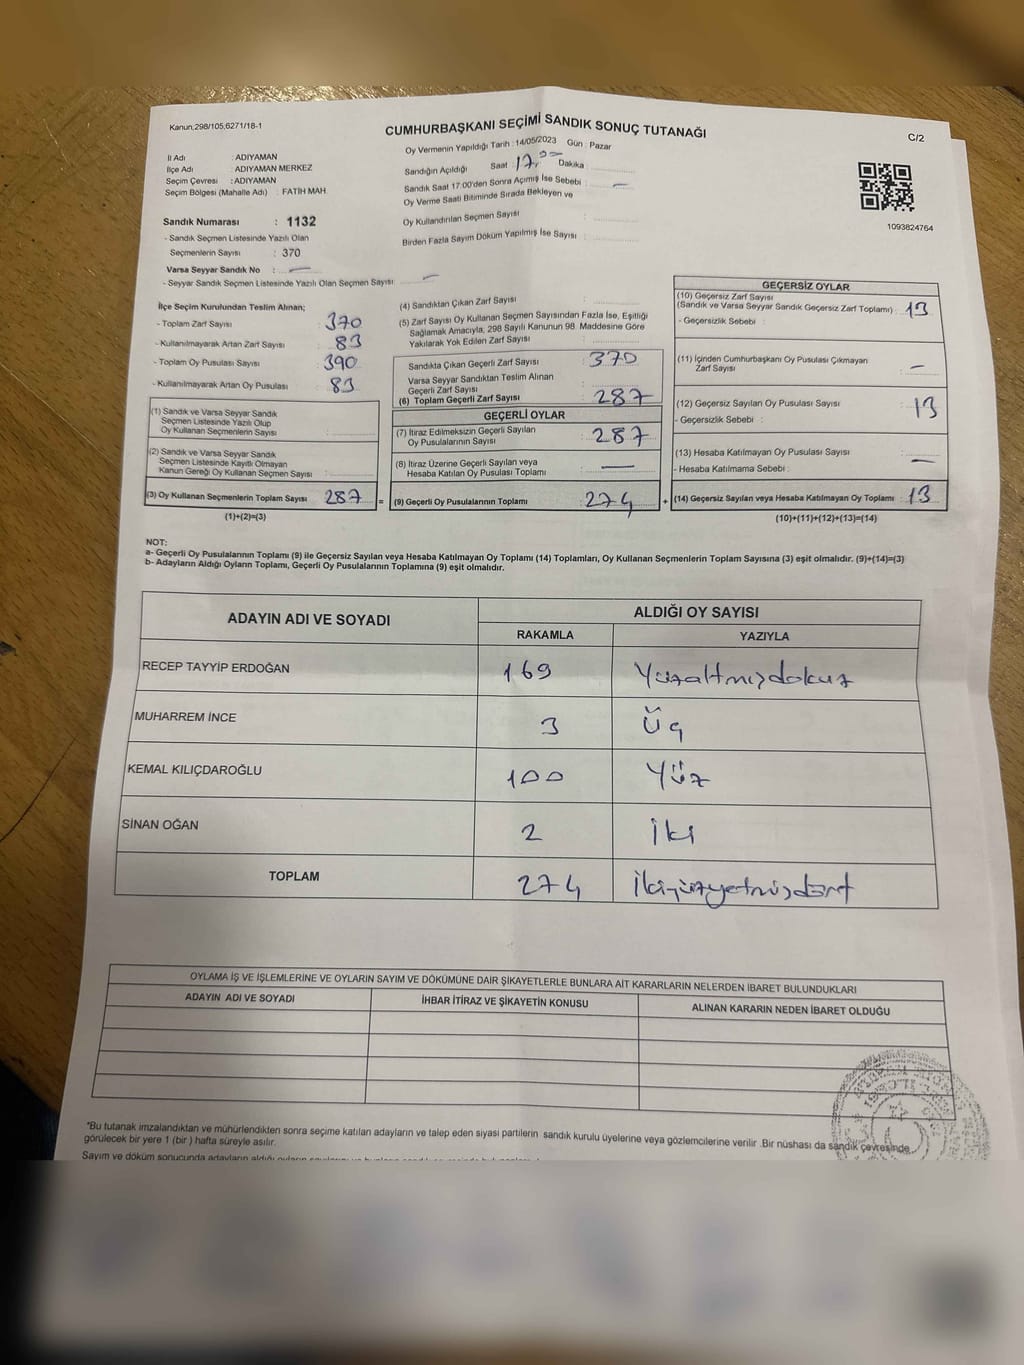 Kanun;298/105;6271/18-1
CUMHURBAŞKANI SEÇİMİ SANDIK SONUÇ TUTANAĞI
C/2
İl Adı : ADIYAMAN
İlçe Adı : ADIYAMAN MERKEZ
Seçim Çevresi : ADIYAMAN
Seçim Bölgesi (Mahalle Adı) : FATİH MAH.
Oy Vermenin Yapıldığı Tarih : 14/05/2023 Gün : Pazar
Sandığın Açıldığı Saat 17 Dakika
Sandık Saat 17:00'den Sonra Açımış İse Sebebi : —
Oy Verme Saati Bitiminde Sırada Bekleyen ve
Oy Kullandırılan Seçmen Sayısı :
Birden Fazla Sayım Döküm Yapılmış İse Sayısı :
1093824764
Sandık Numarası : 1132
- Sandık Seçmen Listesinde Yazılı Olan
Seçmenlerin Sayısı : 370
Varsa Seyyar Sandık No : —
- Seyyar Sandık Seçmen Listesinde Yazılı Olan Seçmen Sayısı : —
İlçe Seçim Kurulundan Teslim Alınan;
- Toplam Zarf Sayısı : 370
- Kullanılmayarak Artan Zarf Sayısı : 83
- Toplam Oy Pusulası Sayısı : 390
- Kullanılmayarak Artan Oy Pusulası : 83
(1) Sandık ve Varsa Seyyar Sandık
Seçmen Listesinde Yazılı Olup
Oy Kullanan Seçmenlerin Sayısı :
(2) Sandık ve Varsa Seyyar Sandık
Seçmen Listesinde Kayıtlı Olmayan
Kanun Gereği Oy Kullanan Seçmen Sayısı :
(3) Oy Kullanan Seçmenlerin Toplam Sayısı : 287 =
(1)+(2)=(3)
(4) Sandıktan Çıkan Zarf Sayısı :
(5) Zarf Sayısı Oy Kullanan Seçmen Sayısından Fazla İse, Eşitliği
Sağlamak Amacıyla, 298 Sayılı Kanunun 98. Maddesine Göre
Yakılarak Yok Edilen Zarf Sayısı :
Sandıkta Çıkan Geçerli Zarf Sayısı : 370
Varsa Seyyar Sandıktan Teslim Alınan
Geçerli Zarf Sayısı :
(6) Toplam Geçerli Zarf Sayısı : 287
GEÇERLİ OYLAR
(7) İtiraz Edilmeksizin Geçerli Sayılan
Oy Pusulalarının Sayısı : 287
(8) İtiraz Üzerine Geçerli Sayılan veya
Hesaba Katılan Oy Pusulası Toplamı : —
(9) Geçerli Oy Pusulalarının Toplamı : 274 +
GEÇERSİZ OYLAR
(10) Geçersiz Zarf Sayısı
(Sandık ve Varsa Seyyar Sandık Geçersiz Zarf Toplamı) : 13
- Geçersizlik Sebebi :
(11) İçinden Cumhurbaşkanı Oy Pusulası Çıkmayan
Zarf Sayısı : —
(12) Geçersiz Sayılan Oy Pusulası Sayısı : 13
- Geçersizlik Sebebi :
(13) Hesaba Katılmayan Oy Pusulası Sayısı : —
- Hesaba Katılmama Sebebi :
(14) Geçersiz Sayılan veya Hesaba Katılmayan Oy Toplamı : 13
(10)+(11)+(12)+(13)=(14)
NOT:
a- Geçerli Oy Pusulalarının Toplamı (9) ile Geçersiz Sayılan veya Hesaba Katılmayan Oy Toplamı (14) Toplamları, Oy Kullanan Seçmenlerin Toplam Sayısına (3) eşit olmalıdır. (9)+(14)=(3)
b- Adayların Aldığı Oyların Toplamı, Geçerli Oy Pusulalarının Toplamına (9) eşit olmalıdır.
ADAYIN ADI VE SOYADI
ALDIĞI OY SAYISI
RAKAMLA YAZIYLA
RECEP TAYYİP ERDOĞAN 169 Yüzaltmışdokuz
MUHARREM İNCE 3 Üç
KEMAL KILIÇDAROĞLU 100 Yüz
SİNAN OĞAN 2 İki
TOPLAM 274 İkiyüzyetmişdört
OYLAMA İŞ VE İŞLEMLERİNE VE OYLARIN SAYIM VE DÖKÜMÜNE DAİR ŞİKAYETLERLE BUNLARA AİT KARARLARIN NELERDEN İBARET BULUNDUKLARI
ADAYIN ADI VE SOYADI İHBAR İTİRAZ VE ŞİKAYETİN KONUSU ALINAN KARARIN NEDEN İBARET OLDUĞU
*Bu tutanak imzalandıktan ve mühürlendikten sonra seçime katılan adayların ve talep eden siyasi partilerin sandık kurulu üyelerine veya gözlemcilerine verilir .Bir nüshası da sandık çevresinde
görülecek bir yere 1 (bir ) hafta süreyle asılır.
Sayım ve döküm sonucunda adayların aldığı